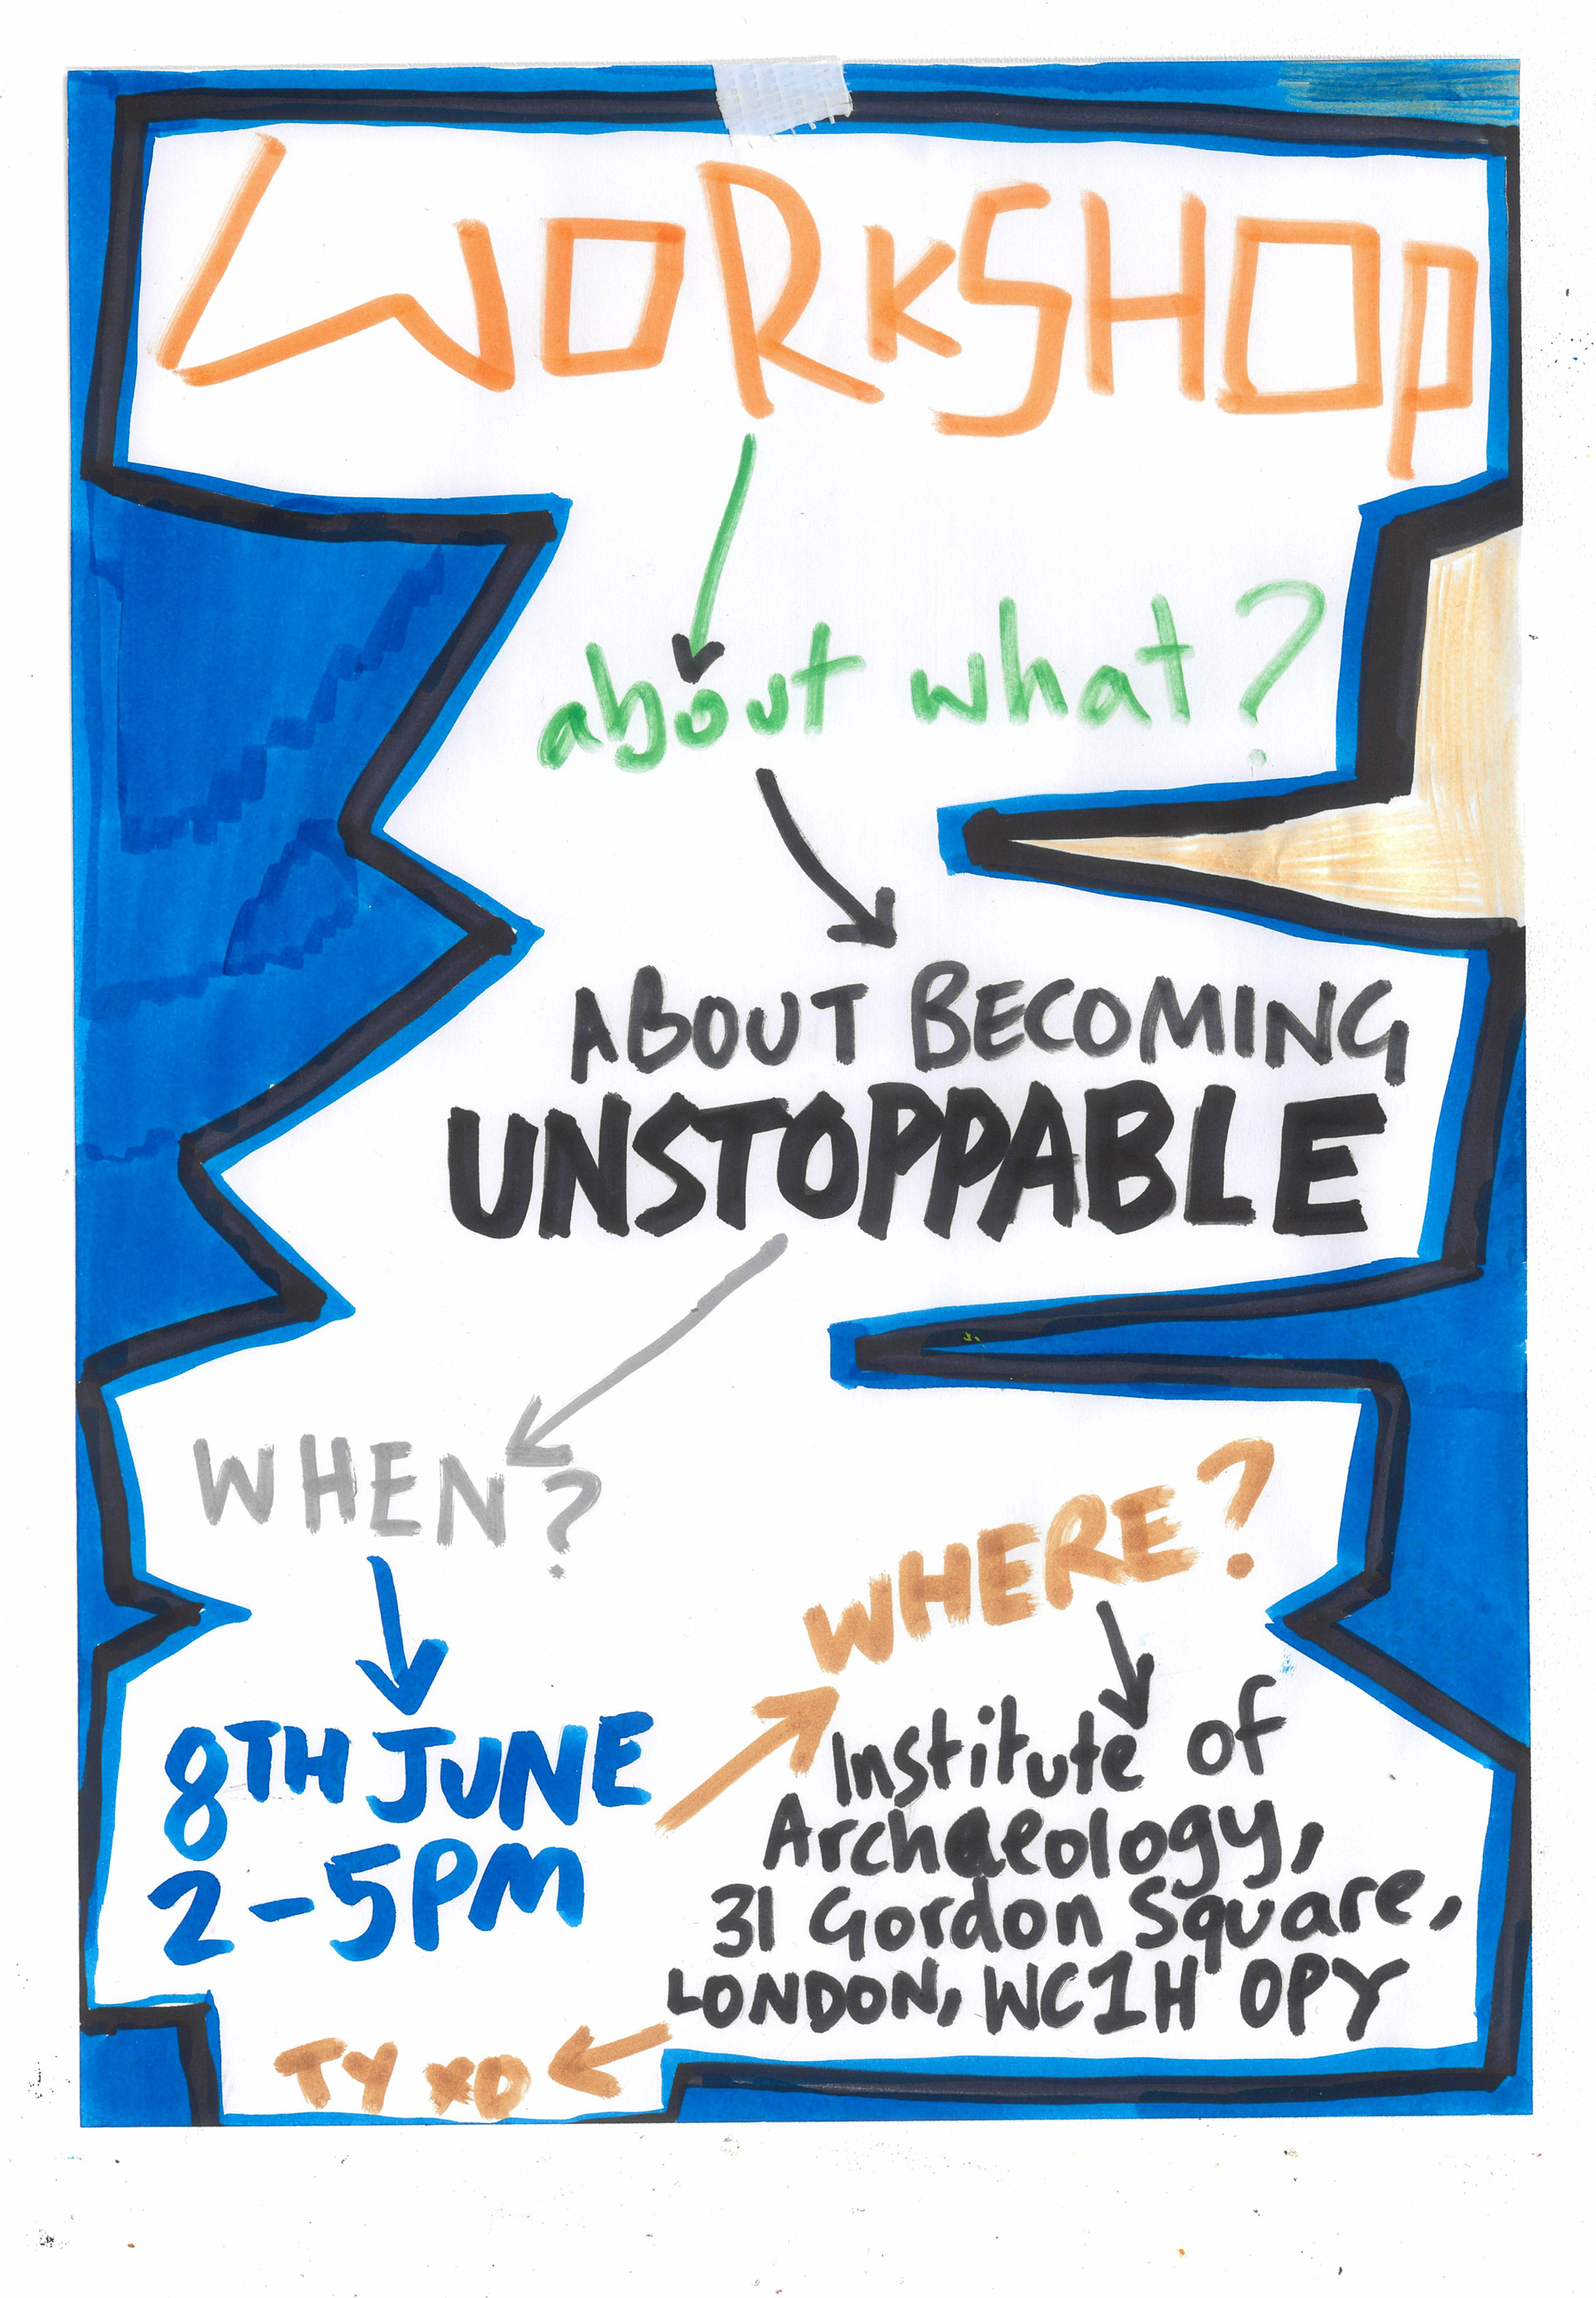 WORKSHOP
about what?
ABOUT BECOMING
UNSTOPPABLE
WHEN?
8TH JUNE
2-5PM
WHERE?
Institute of
Archaeology,
31 Gordon Square,
LONDON, WC1H 0PY
TY XO